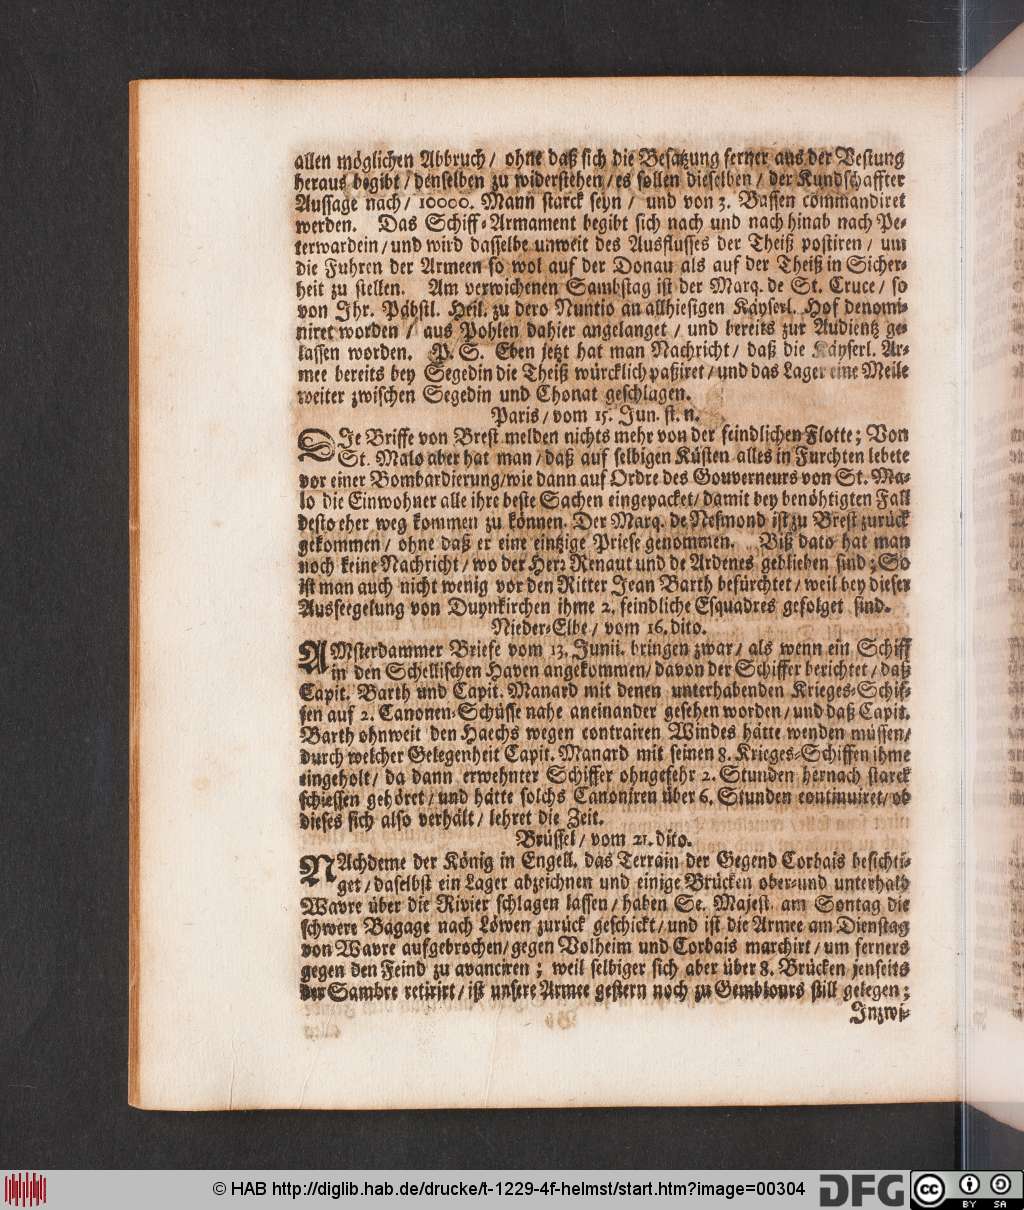 allen möglichen Abbruch / ohne daß sich die Besatzung ferner aus der Vestung
heraus begibt / denselben zu widerstehen / es sollen dieselben / der Kundschaffter
Aussage nach / 10000. Mann starck seyn / und von 3. Bassen cōmmandiret
werden. Das Schiff-Armament begibt sich nach und nach hinab nach Pe-
terwardein / und wird dasselbe unweit des Ausflusses der Theiß postiren / um
die Fuhren der Armeen so wol auf der Donau als auf der Theiß in Sicher-
heit zu stellen. Am verwichenen Sambstag ist der Marq. de St. Cruce / so
von Ihr. Päbstl. Heil. zu dero Nuntio an allhiesigen Käyserl. Hof denomi-
niret worden / aus Pohlen dahier angelanget / und bereits zur Audientz ge-
lassen worden. P. S. Eben jetzt hat man Nachricht / daß die Käyserl. Ar-
mee bereits bey Segedin die Theiß würcklich paßiret / und das Lager eine Meile
weiter zwischen Segedin und Chonat geschlagen.
Paris / vom 15. Jun. st. n.
DIe Briffe von Brest melden nichts mehr von der feindlichen Flotte; Von
St. Malo aber hat man / daß auf selbigen Küsten alles in Furchten lebete
vor einer Bombardierung / wie dann auf Ordre des Gouverneurs von St. Ma-
lo die Einwohner alle ihre beste Sachen eingepacket / damit bey benöhtigten Fall
desto eher weg kommen zu können. Der Marq. de Nesmond ist zu Brest zurück
gekommen / ohne daß er eine eintzige Priese genommen. Biß dato hat man
noch keine Nachricht / wo der Herr Renaut und de Ardenes geblieben sind; So
ist man auch nicht wenig vor den Ritter Jean Barth befürchtet / weil bey dieser
Ausseegelung von Duynkirchen ihme 2. feindliche Esquadres gefolget sind.
Nieder-Elbe / vom 16. dito.
AMsterdammer Briefe vom 13. Junii. bringen zwar / als wenn ein Schiff
in den Schellischen Haven angekommen / davon der Schiffer berichtet / daß
Capit. Barth und Capit. Manard mit denen unterhabenden Krieges-Schif-
fen auf 2. Canonen-Schüsse nahe aneinander gesehen worden / und daß Capit.
Barth ohnweit den Haechs wegen contrairen Windes hätte wenden müssen /
durch welcher Gelegenheit Capit. Manard mit seinen 8. Krieges-Schiffen ihme
eingeholt / da dann erwehnter Schiffer ohngefehr 2. Stunden hernach starck
schiessen gehöret / und hätte solchs Canoniren über 6. Stunden continuiret / ob
dieses sich also verhält / lehret die Zeit.
Brüssel / vom 21. dito.
NAchdeme der König in Engell. das Terrain der Gegend Corbais besichti-
get / daselbst ein Lager abzeichnen und einige Brücken ober- und unterhalb
Wavre über die Rivier schlagen lassen / haben Se. Majest. am Sontag die
schwere Bagage nach Löwen zurück geschickt / und ist die Armee am Dienstag
von Wavre aufgebrochen / gegen Volheim und Corbais marchirt / um ferners
gegen den Feind zu avanciren; weil selbiger sich aber über 8. Brücken jenseits
der Sambre retirirt / ist unsere Armee gestern noch zu Gemblours still gelegen;
Inzwi-
© HAB http://diglib.hab.de/drucke/t-1229-4f-helmst/start.htm?image=00304
DFG
cc
BY SA